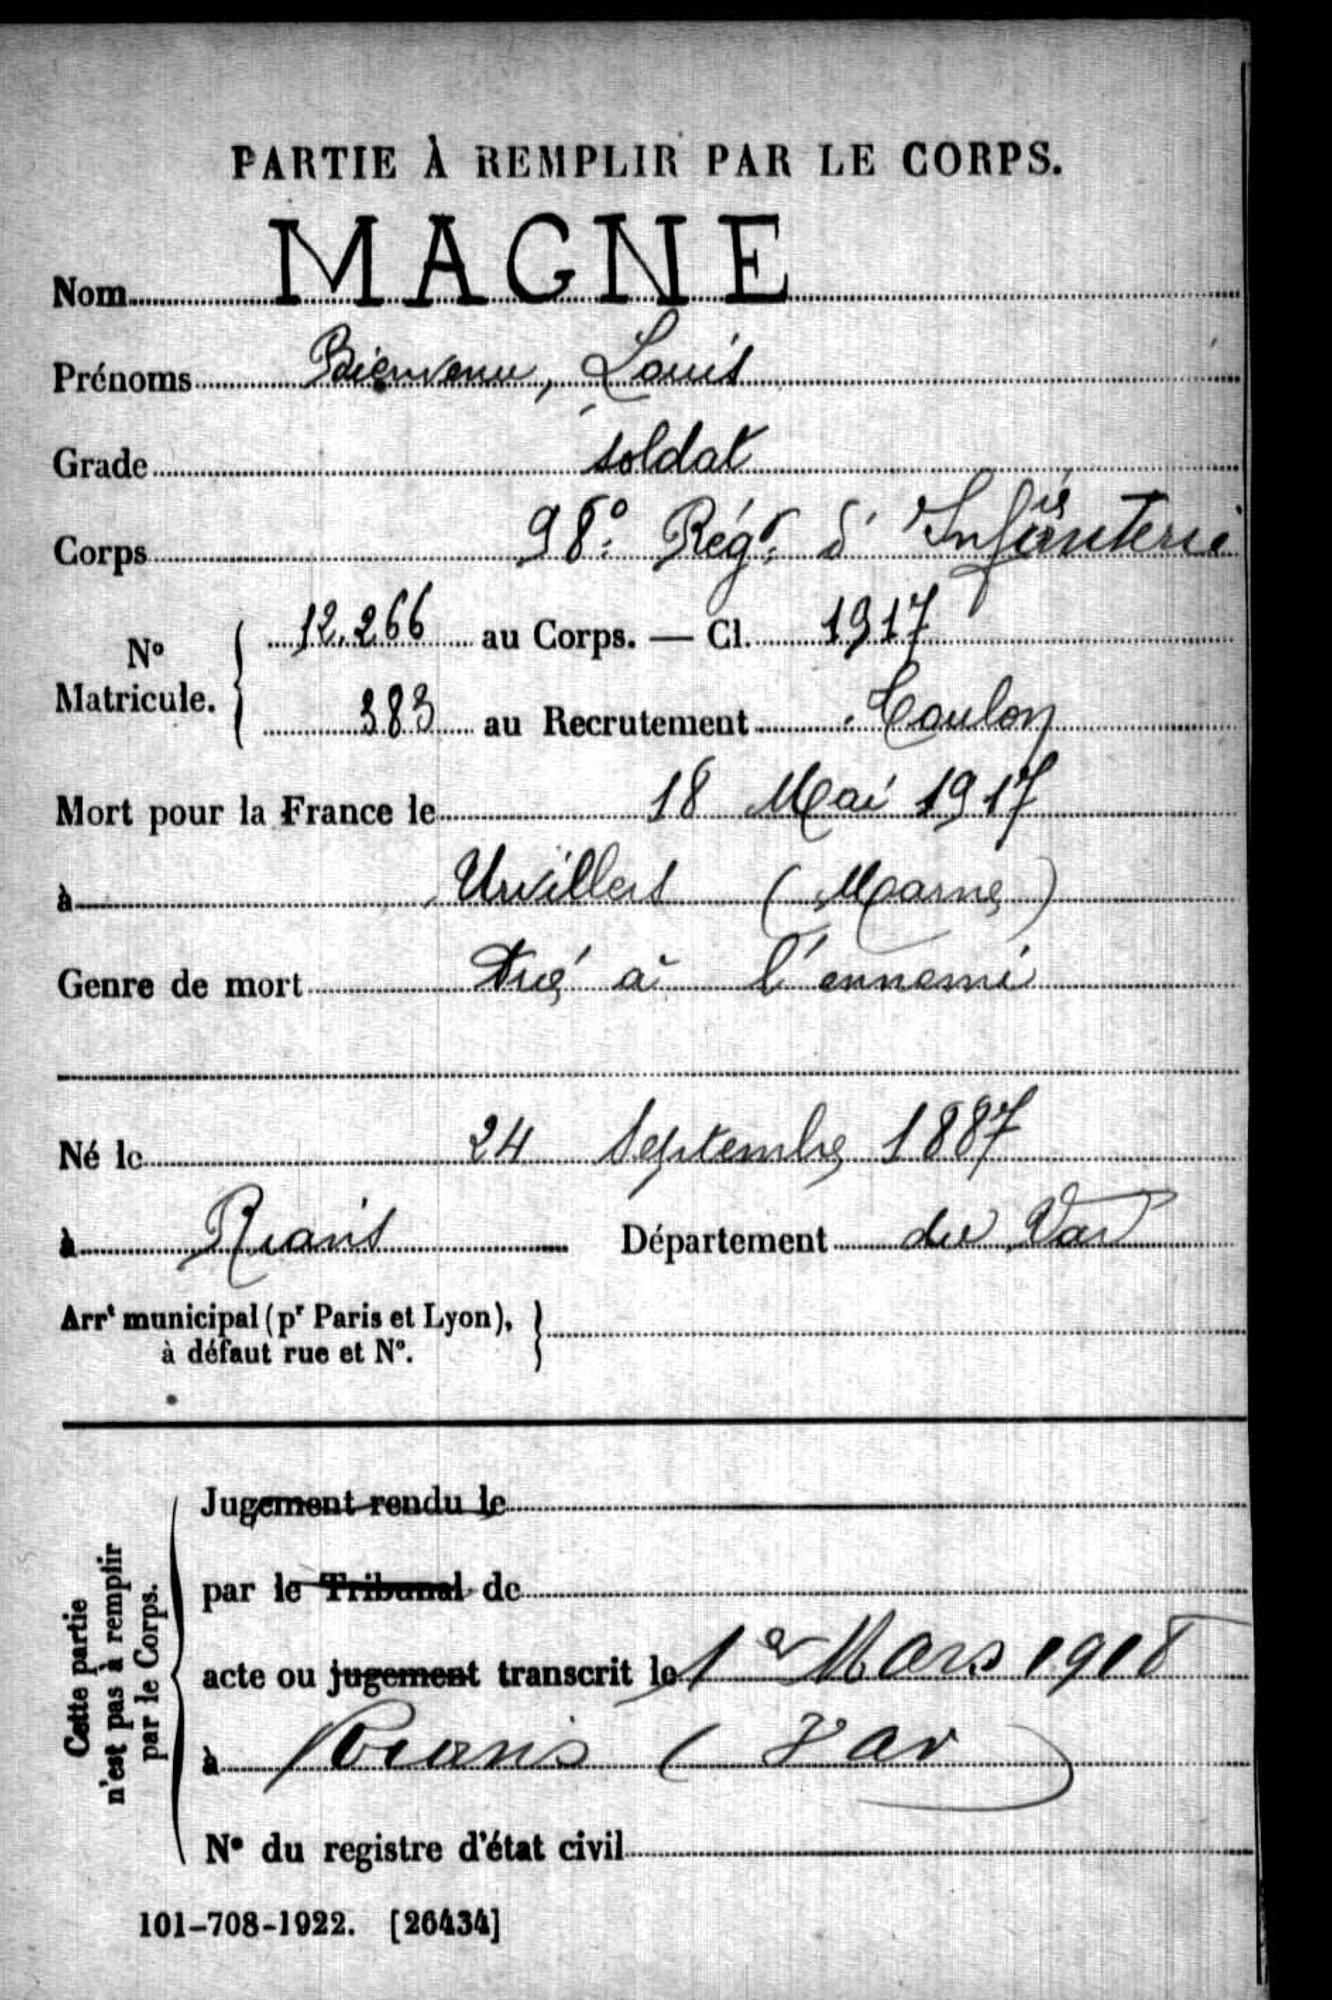 PARTIE À REMPLIR PAR LE CORPS.
Nom MAGNE
Prénoms Bienvenu, Louis
Grade soldat
Corps 98e Régt d'Infanterie
No Matricule. 12.266 au Corps. — Cl. 1917
383 au Recrutement Toulon
Mort pour la France le 18 Mai 1917
à Urvillers (Marne)
Genre de mort Tué à l'ennemi
Né le 24 Septembre 1887
à Rians Département du Var
Arrt municipal (pr Paris et Lyon),
à défaut rue et No.
Cette partie
n'est pas à remplir
par le Corps.
Jugement rendu le
par le Tribunal de
acte ou jugement transcrit le 1er Mars 1918
à Rians (Var)
No du registre d'état civil
101-708-1922. [26434]